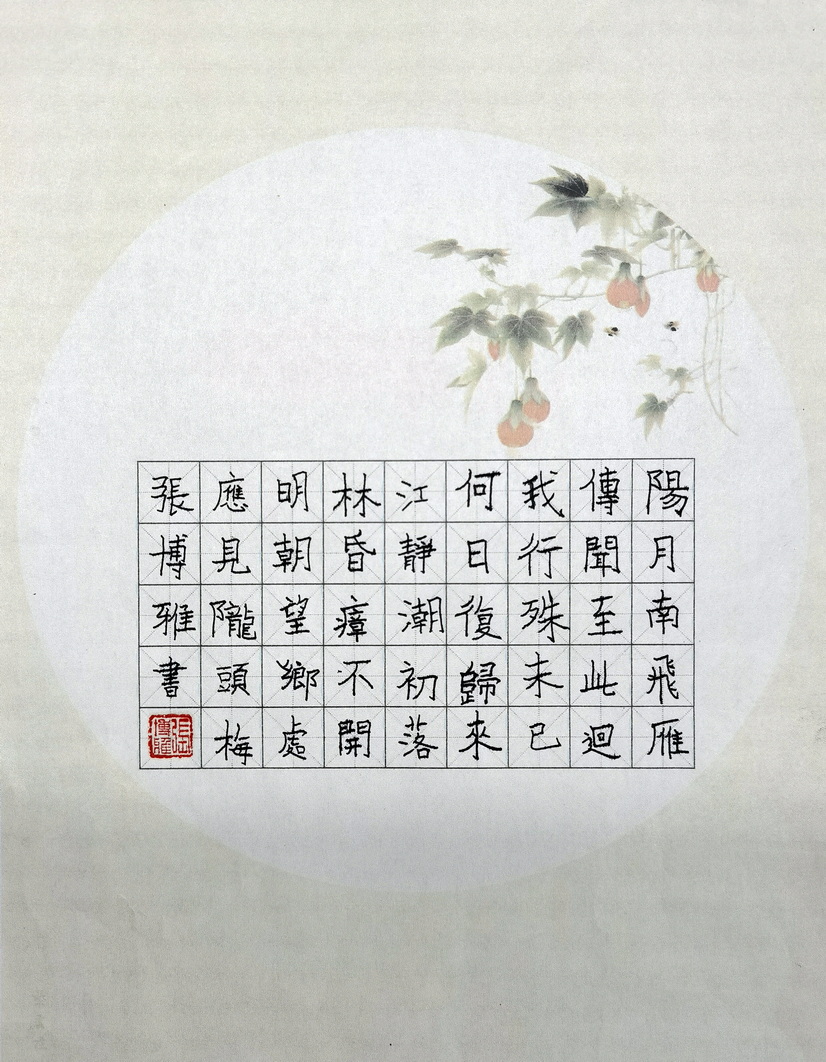 陽月南飛雁
傳聞至此迴
我行殊未已
何日復歸來
江靜潮初落
林昏瘴不開
明朝望鄉處
應見隴頭梅
張博雅書
張博雅